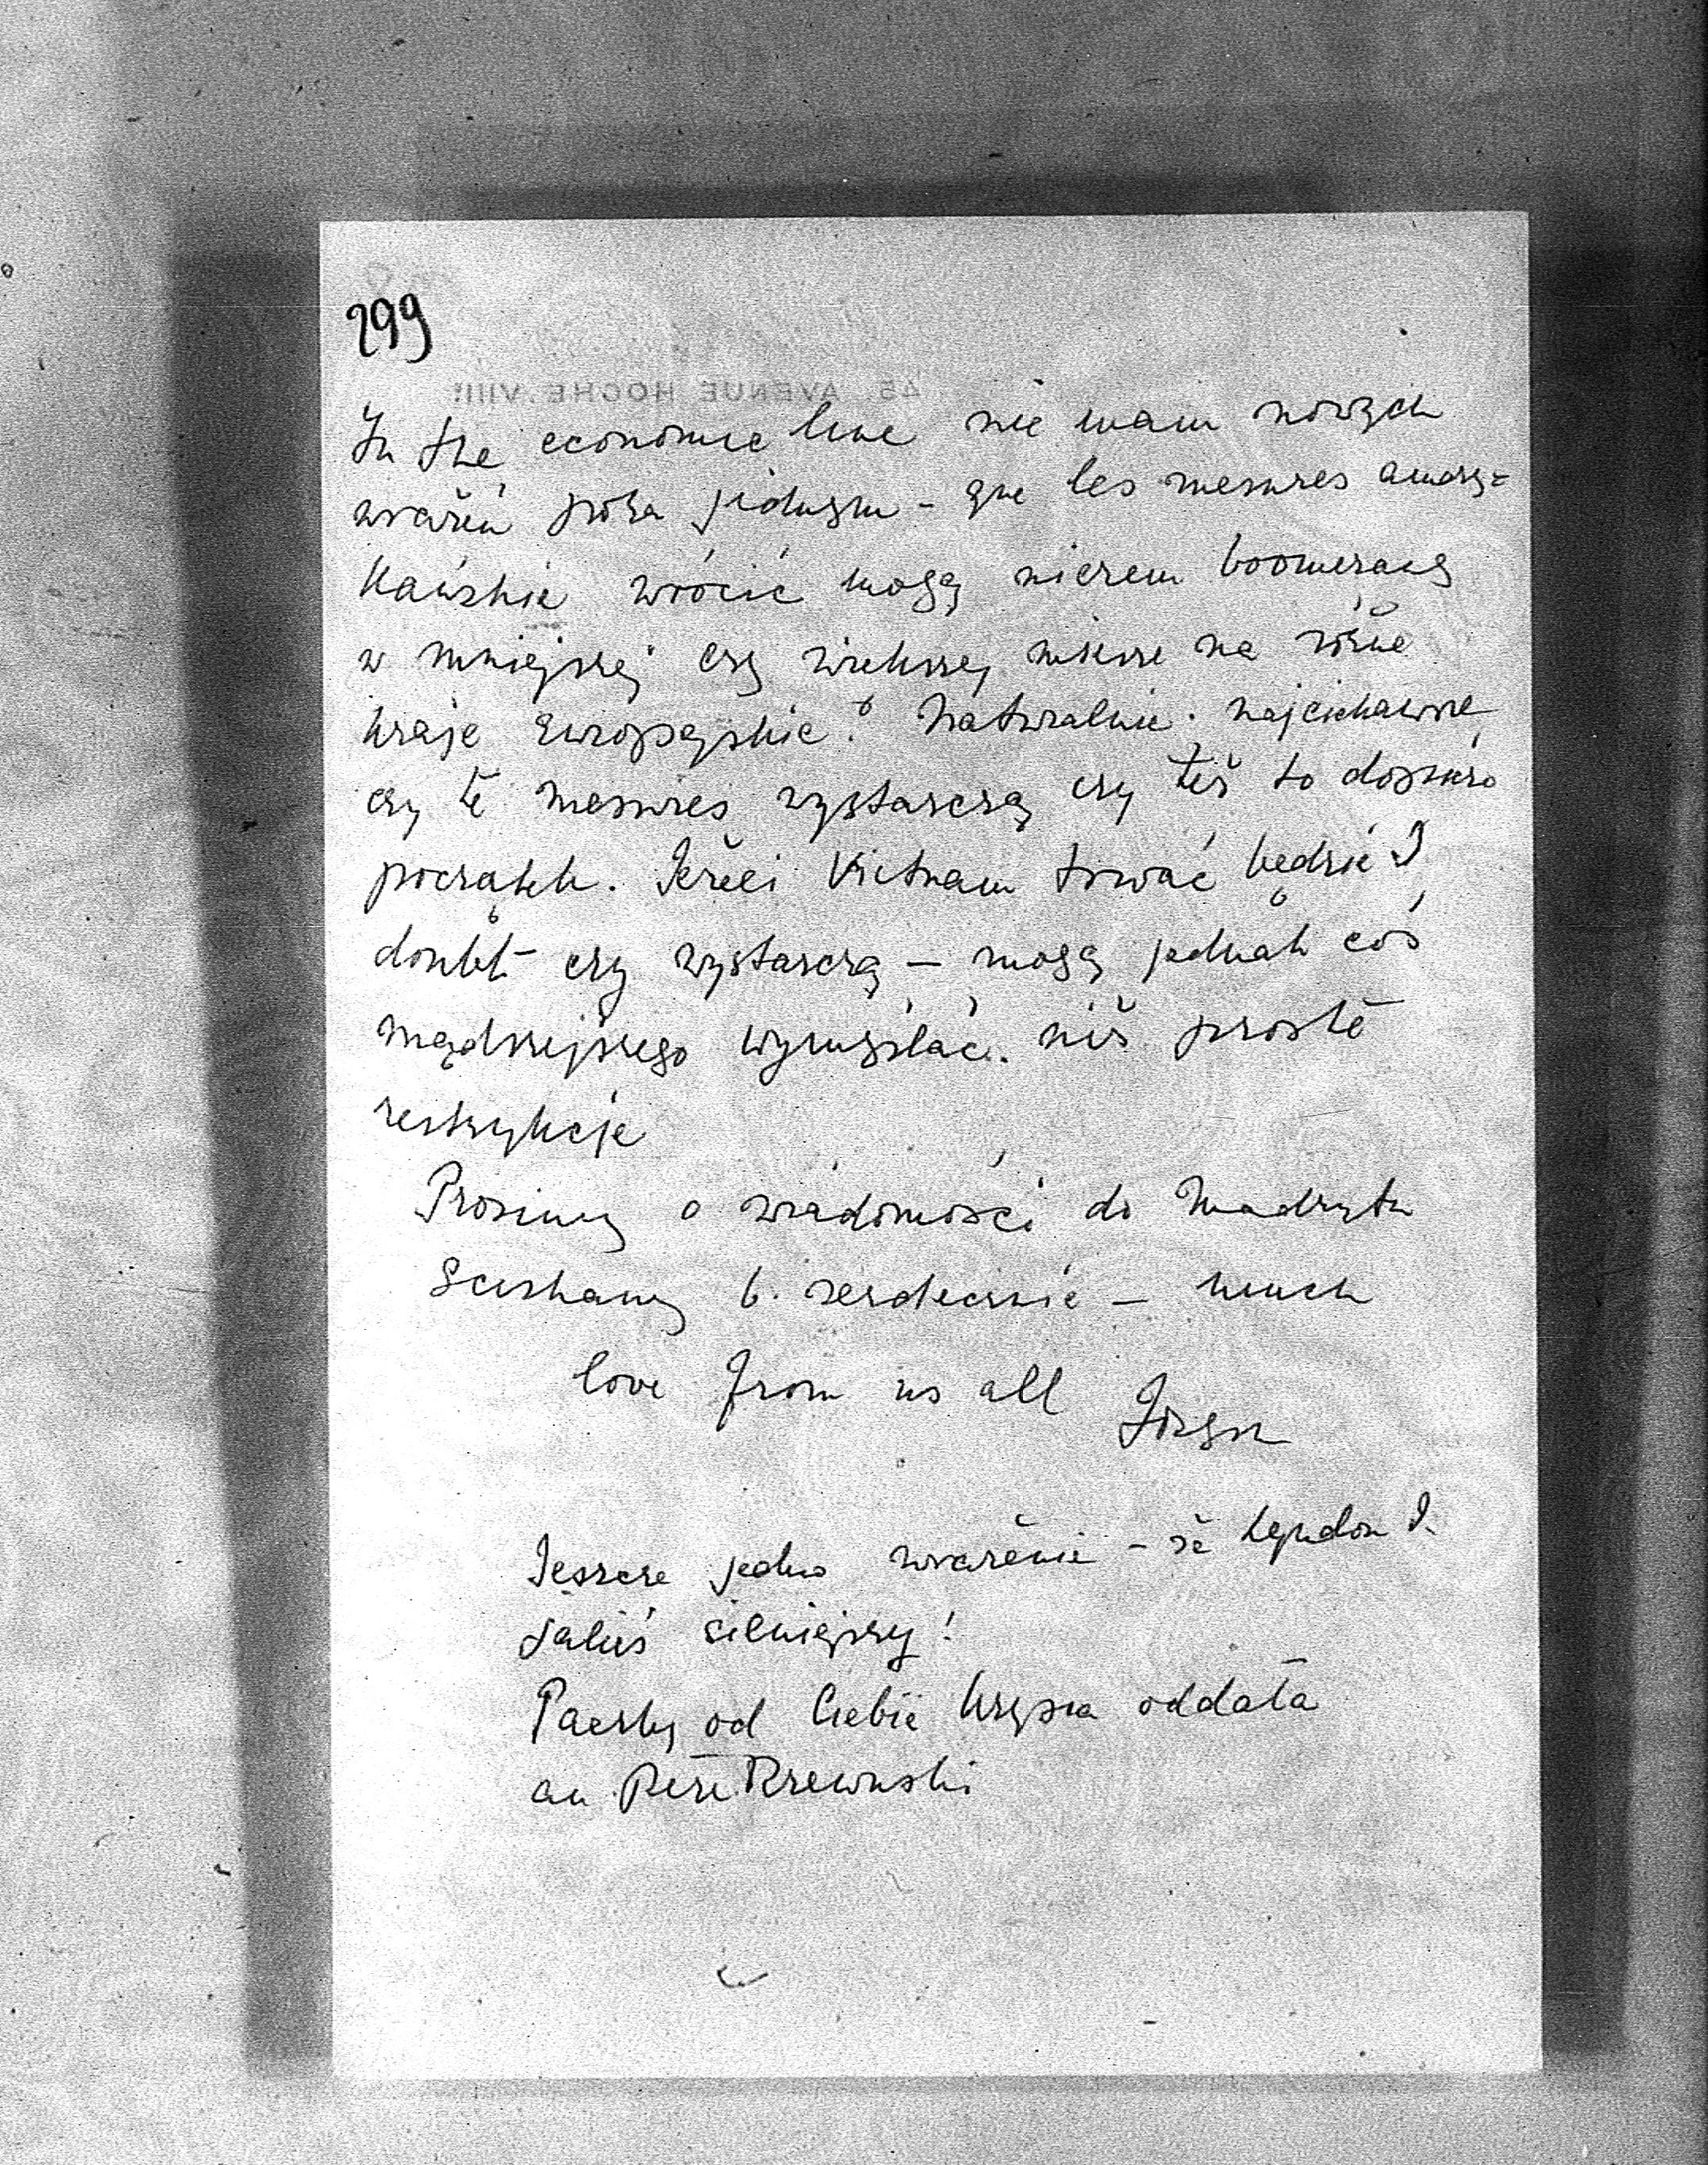 299
45, AVENUE HOCHE. VIII!
In the economic line nie mam nowych
wrażeń poza jednym - que les mesures amery=
kańskie wrócić mogą boomerang
w mniejszej czy większej mierze na różne
kraje Europejskie. Naturalnie. najciekawsze
czy te mesures wystarczą czy też to dopiero
początek. Jeżeli Vietnam trwać będzie I
doubt czy wystarczą — mogą jednak coś
mądrzejszego wymyślać. niż proste
restrykcje
Prosimy o wiadomości do Madrytu
Sciskamy b. serdecznie — much
love from us all
Jeszcze jedno wrażenie - że
jakiś silniejszy!
Paczkę od Ciebie oddała
au Père Rzewuski